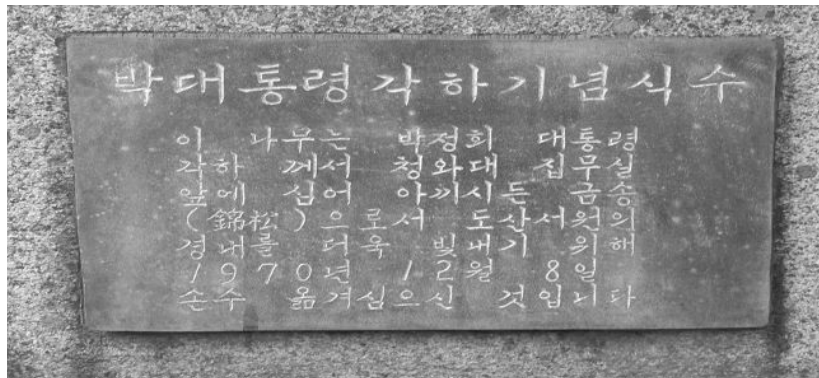 박대통령각하기념식수
이 나무는 박정희 대통령
각하 께서 청와대 집무실
앞에 심어 아끼시든 금송
(錦松)으로서 도산서원의
경내를 더욱 빛내기 위해
1970년 12월 8일
손수 옮겨심으신 것입니다